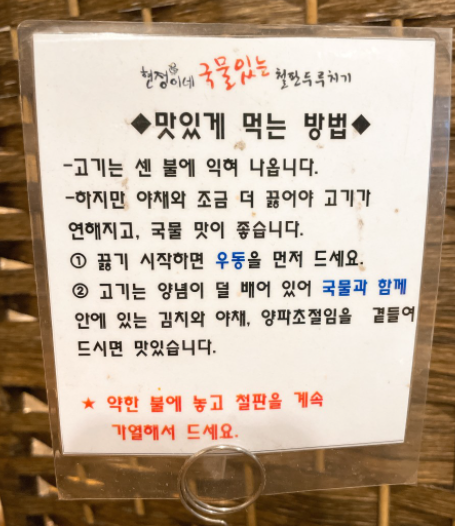 현정이네 국물있는 철판두루치기
◆맛있게 먹는 방법◆
-고기는 센 불에 익혀 나옵니다.
-하지만 야채와 조금 더 끓어야 고기가
연해지고, 국물 맛이 좋습니다.
① 끓기 시작하면 우동을 먼저 드세요.
② 고기는 양념이 덜 배어 있어 국물과 함께
안에 있는 김치와 야채, 양파초절임을 곁들여
드시면 맛있습니다.
★ 약한 불에 놓고 철판을 계속
가열해서 드세요.